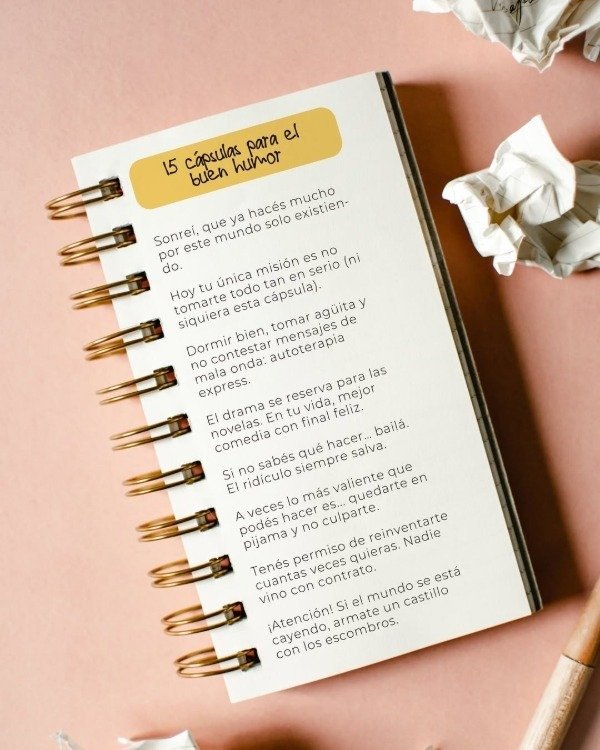 15 cápsulas para el
buen humor
Sonreí, que ya hacés mucho
por este mundo solo existien-
do.
Hoy tu única misión es no
tomarte todo tan en serio (ni
siquiera esta cápsula).
Dormir bien, tomar agüita y
no contestar mensajes de
mala onda: autoterapia
express.
El drama se reserva para las
novelas. En tu vida, mejor
comedia con final feliz.
Si no sabés qué hacer... bailá.
El ridículo siempre salva.
A veces lo más valiente que
podés hacer es... quedarte en
pijama y no culparte.
Tenés permiso de reinventarte
cuantas veces quieras. Nadie
vino con contrato.
¡Atención! Si el mundo se está
cayendo, armate un castillo
con los escombros.